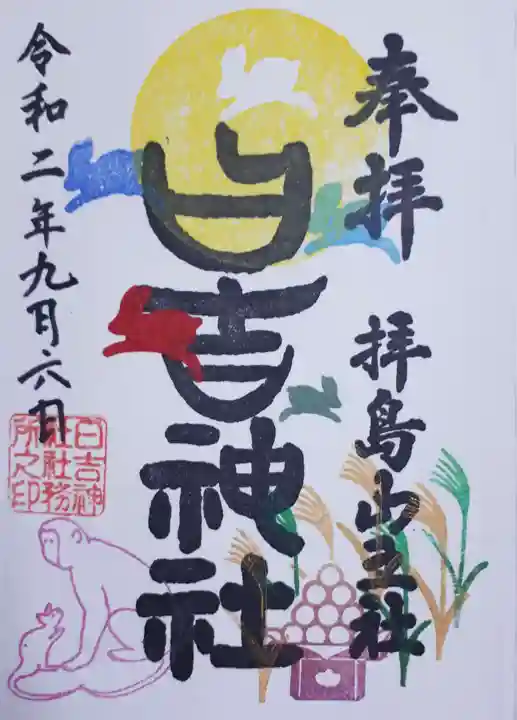 奉拝
拝島山王社
日吉神社
令和二年九月六日
日吉神
社社務
所之印